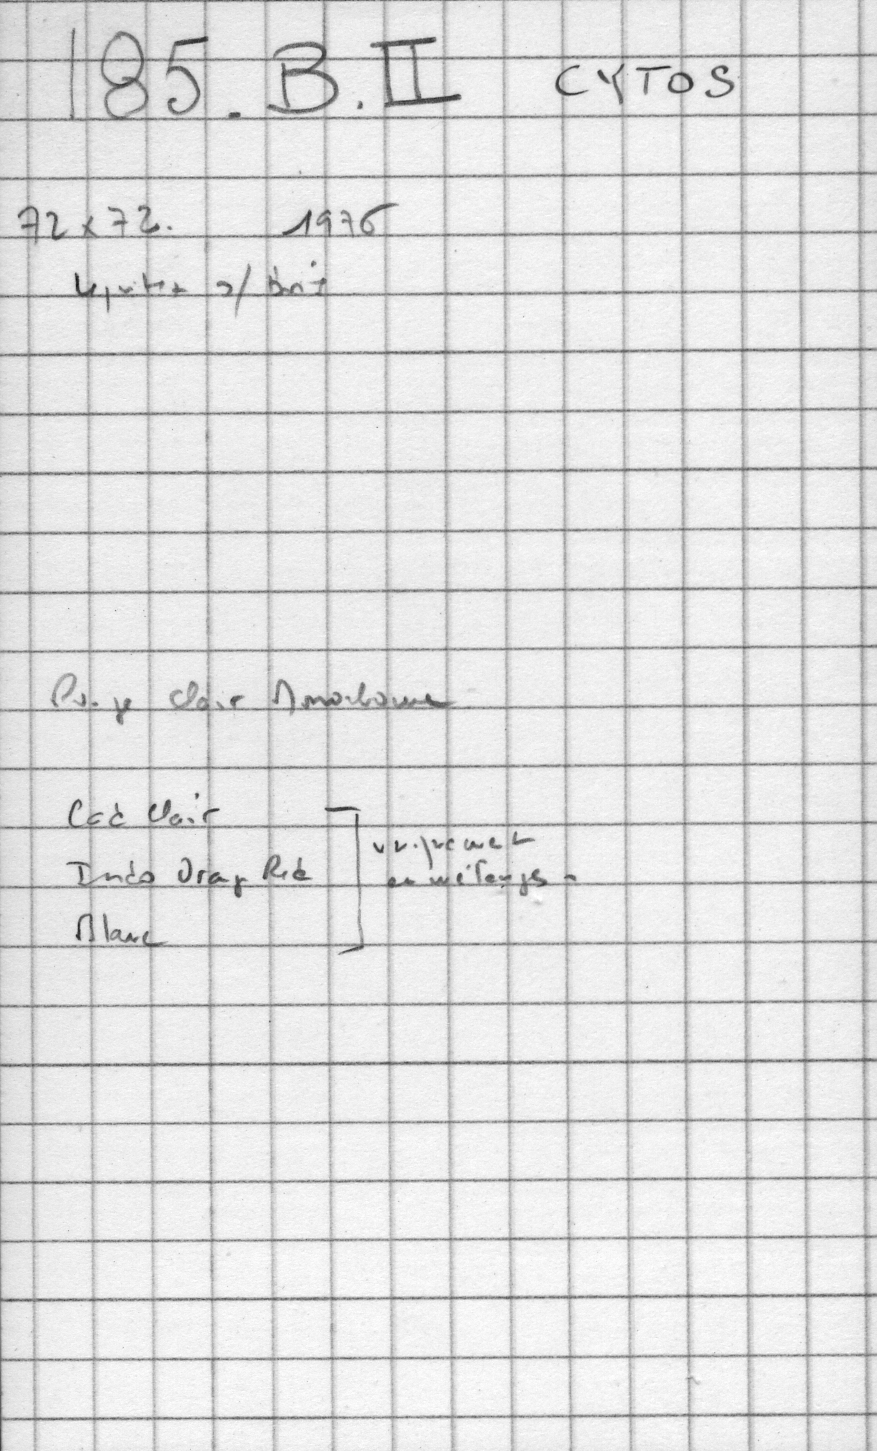 185.B.II CYTOS
72 x 72. 1976
s/ bois
Rouge clair Monochrome
Cad clair
Indo Orange Red
Blanc
uniquement
en mélanges